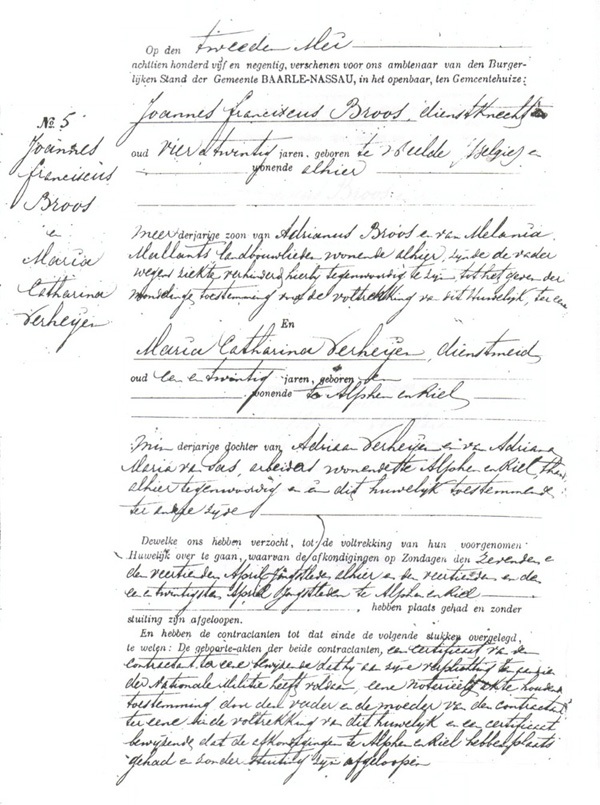 Op den tweeden Mei
achttien honderd vijf en negentig, verschenen voor ons ambtenaar van den Burger-
lijken Stand der Gemeente BAARLE-NASSAU, in het openbaar, ten Gemeentehuize:
Joannes Franciscus Broos, dienstknecht
oud vier en twintig jaren, geboren te Weelde (België) en
wonende alhier
No. 5
Joannes
Franciscus
Broos
en
Maria
Catharina
Verheijen
meerderjarige zoon van Adrianus Broos en van Melania
Mallants landbouwlieden wonende alhier, zijnde de vader
wegens ziekte verhinderd hierbij tegenwoordig te zijn tot het geven der
mondelinge toestemming voor de voltrekking van dit Huwelijk, ter eene
En
Maria Catharina Verheijen, dienstmeid
oud een en twintig jaren, geboren en
wonende te Alphen en Riel
minderjarige dochter van Adriaan Verheijen en van Adriana
Maria van Gas, arbeiders wonende te Alphen en Riel,
alhier tegenwoordig en in dit huwelijk toestemmende
ter andere zijde
Dewelke ons hebben verzocht, tot de voltrekking van hun voorgenomen
Huwelijk over te gaan, waarvan de afkondigingen op Zondagen den zevenden en
den veertienden April jongstleden alhier en den veertienden en de
een en twintigsten April jongstleden te Alphen en Riel
hebben plaats gehad en zonder
stuiting zijn afgeloopen.
En hebben de contractanten tot dat einde de volgende stukken overgelegd,
te weten: De geboorte-akten der beide contractanten, een certificaat van de
contractant ter eene bewijzende dat hij aan zijne verplichting ten aanzien
der Nationale Militie heeft voldaan, eene notarieele akte houdende
toestemming door den vader en de moeder van den contractant
ter eene in de voltrekking van dit huwelijk en een certificaat
bewijzende dat de afkondigingen te Alphen en Riel hebben plaats
gehad en zonder stuiting zijn afgeloopen